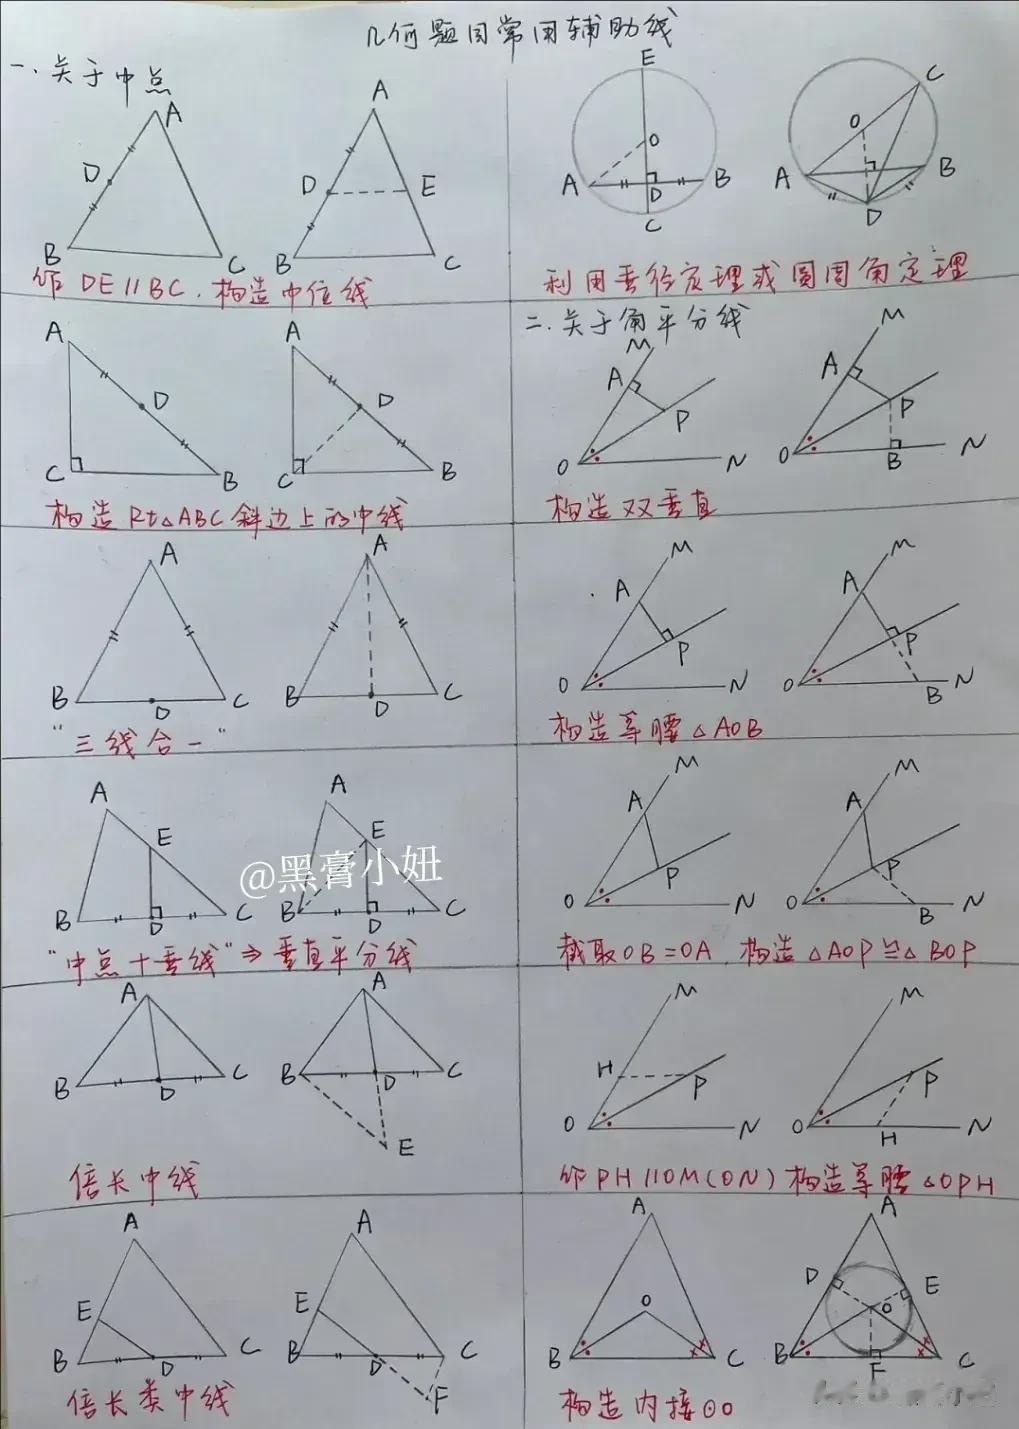 几何题目常用辅助线
一.关于中点
A
D
B
C
A
D
E
B
C
作DE∥BC.构造中位线
A
D
C
B
A
D
C
B
构造Rt△ABC斜边上的中线
A
B
D
C
A
B
D
C
"三线合一"
A
E
B
D
C
A
E
B
D
C
@黑膏小妞
"中点+垂线"⇒垂直平分线
A
B
D
C
A
B
D
C
E
倍长中线
A
E
B
D
C
A
E
B
D
C
F
倍长类中线
E
O
A
D
B
C
C
O
A
B
D
利用垂径定理或圆周角定理
二.关于角平分线
M
A
P
O
N
M
A
P
O
B
N
构造双垂直
M
A
P
O
N
M
A
P
O
B
N
构造等腰△AOB
M
A
P
O
N
M
A
P
O
B
N
截取OB=OA.构造△AOP≌△BOP
M
H
P
O
N
M
P
O
H
N
作PH∥OM(ON)构造等腰△OPH
A
O
B
C
A
D
E
O
B
F
C
构造内接⊙O